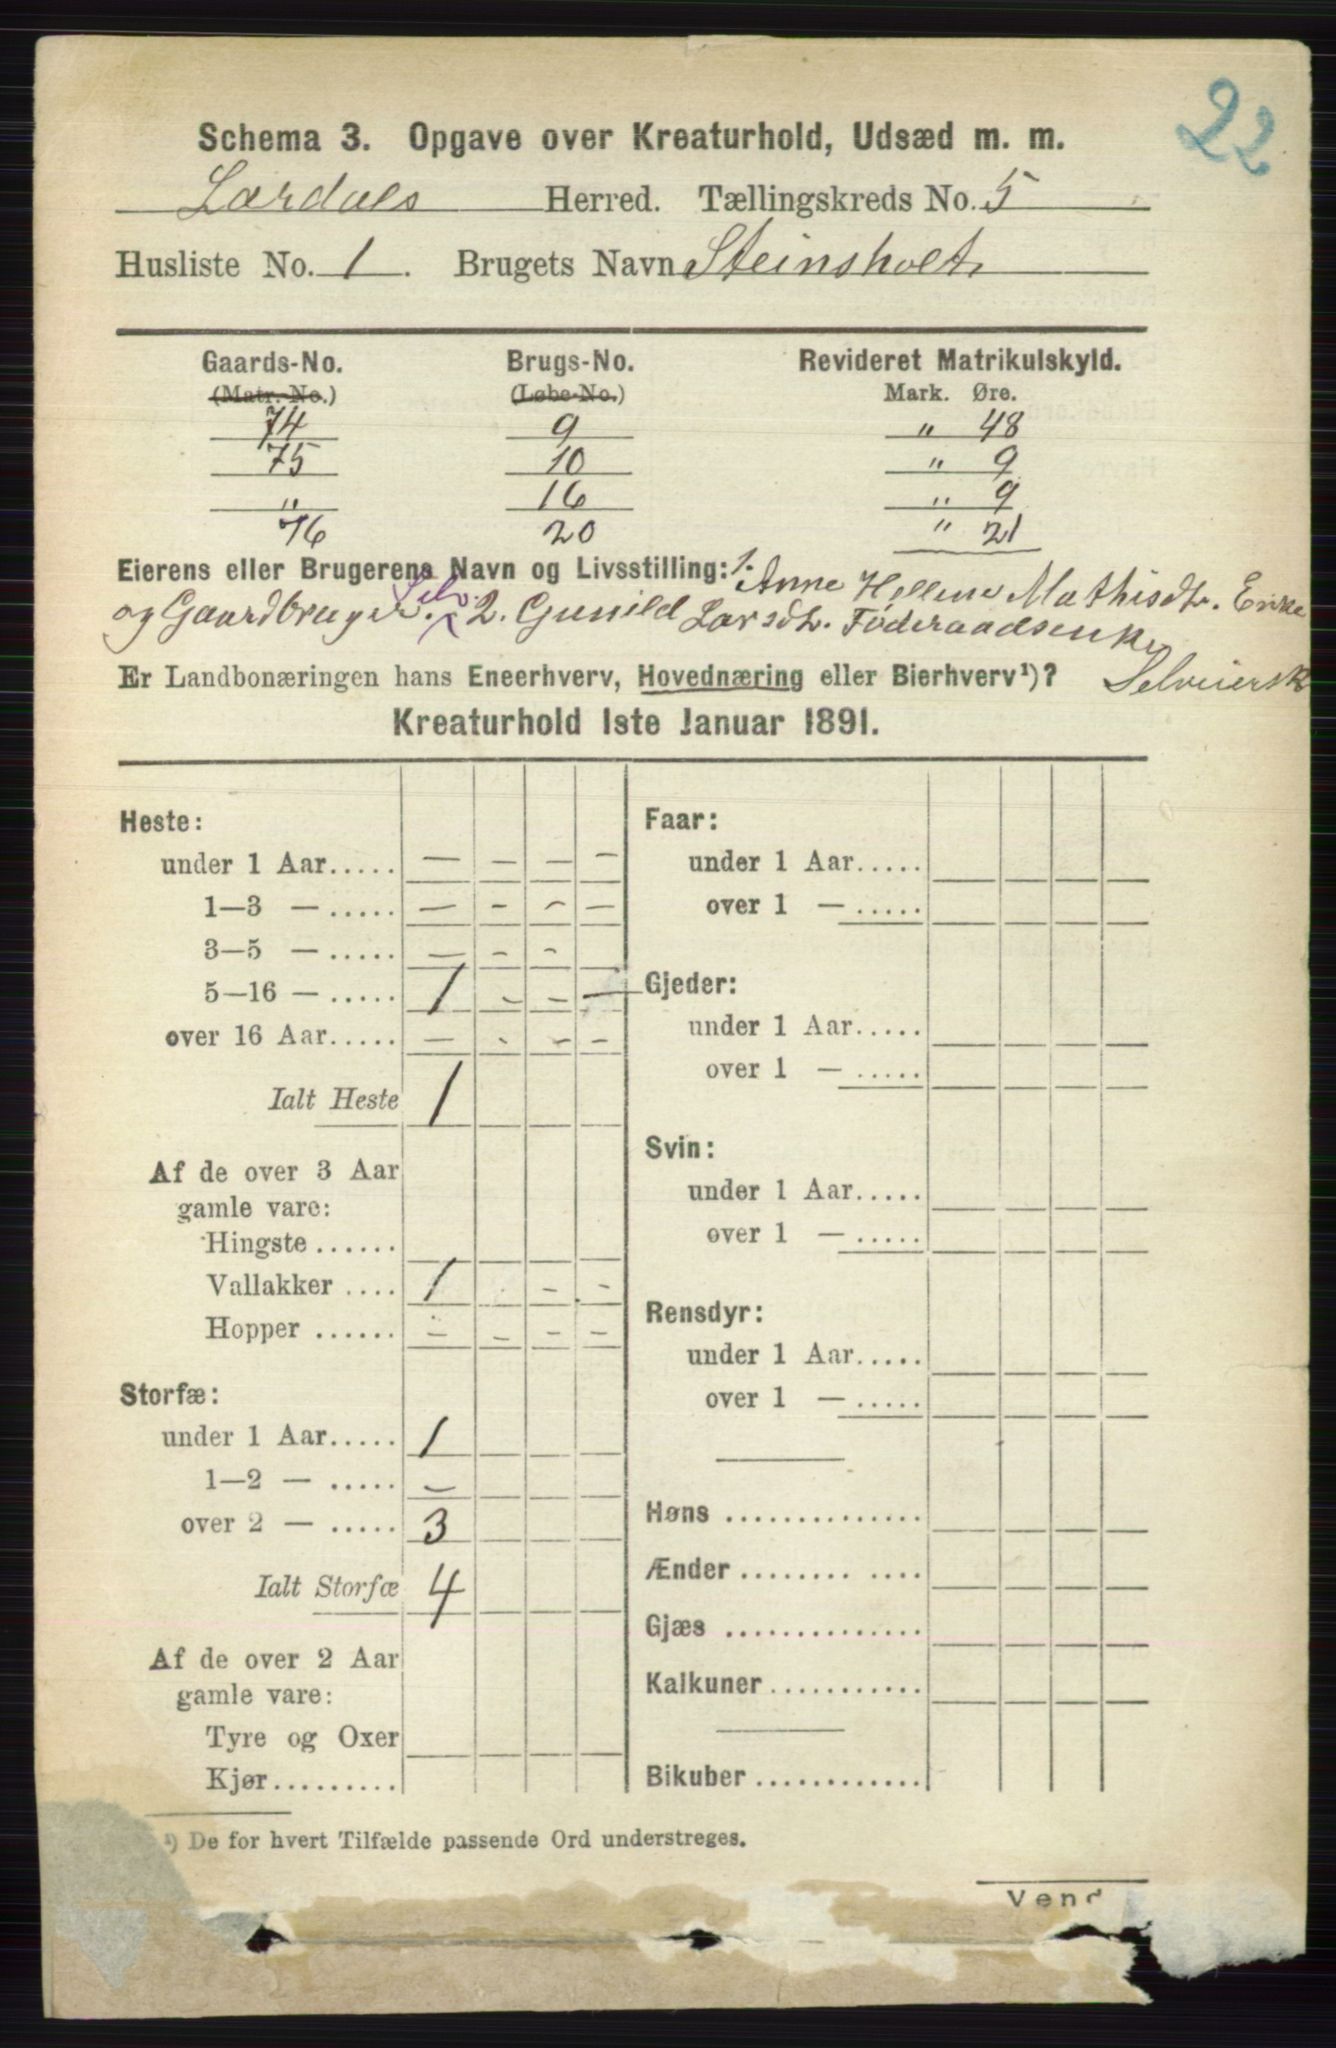 22
Schema 3. Opgave over Kreaturhold, Udsæd m. m.
Lardals Herred. Tællingskreds No. 5
Husliste No. 1. Brugets Navn Steinsholt
Gaards-No. Brugs-No. Revideret Matrikulskyld.
(Matr.-No.) (Løbe-No.) Mark. Øre.
74 9 " 48
75 10 " 9
" 16 " 9
76 20 " 21
Eierens eller Brugerens Navn og Livsstilling: 1. Anne Hellene Mathisdt. Enke
og Gaardbruger. Selv. 2. Gunild Larsdt. Føderaadsenke
Er Landbonæringen hans Eneerhverv, Hovednæring eller Bierhverv¹)? Selveiersk
Kreaturhold 1ste Januar 1891.
Heste:
under 1 Aar..... — — — —
1—3 — ..... — — — —
3—5 — ..... — — —
5—16 — ..... 1 — — —
over 16 Aar..... — — — —
Ialt Heste 1
Af de over 3 Aar
gamle vare:
Hingste ......
Vallakker .... 1 — —
Hopper ...... — — — —
Storfæ:
under 1 Aar..... 1
1—2 — ..... —
over 2 — ..... 3
Ialt Storfæ 4
Af de over 2 Aar
gamle vare:
Tyre og Oxer
Kjør..........
Faar:
under 1 Aar.....
over 1 — .....
Gjeder:
under 1 Aar.....
over 1 — .....
Svin:
under 1 Aar.....
over 1 — .....
Rensdyr:
under 1 Aar.....
over 1 — .....
Høns ..............
Ænder ........ ....
Gjæs ..............
Kalkuner...........
Bikuber ............
¹) De for hvert Tilfælde passende Ord understreges.
Vend